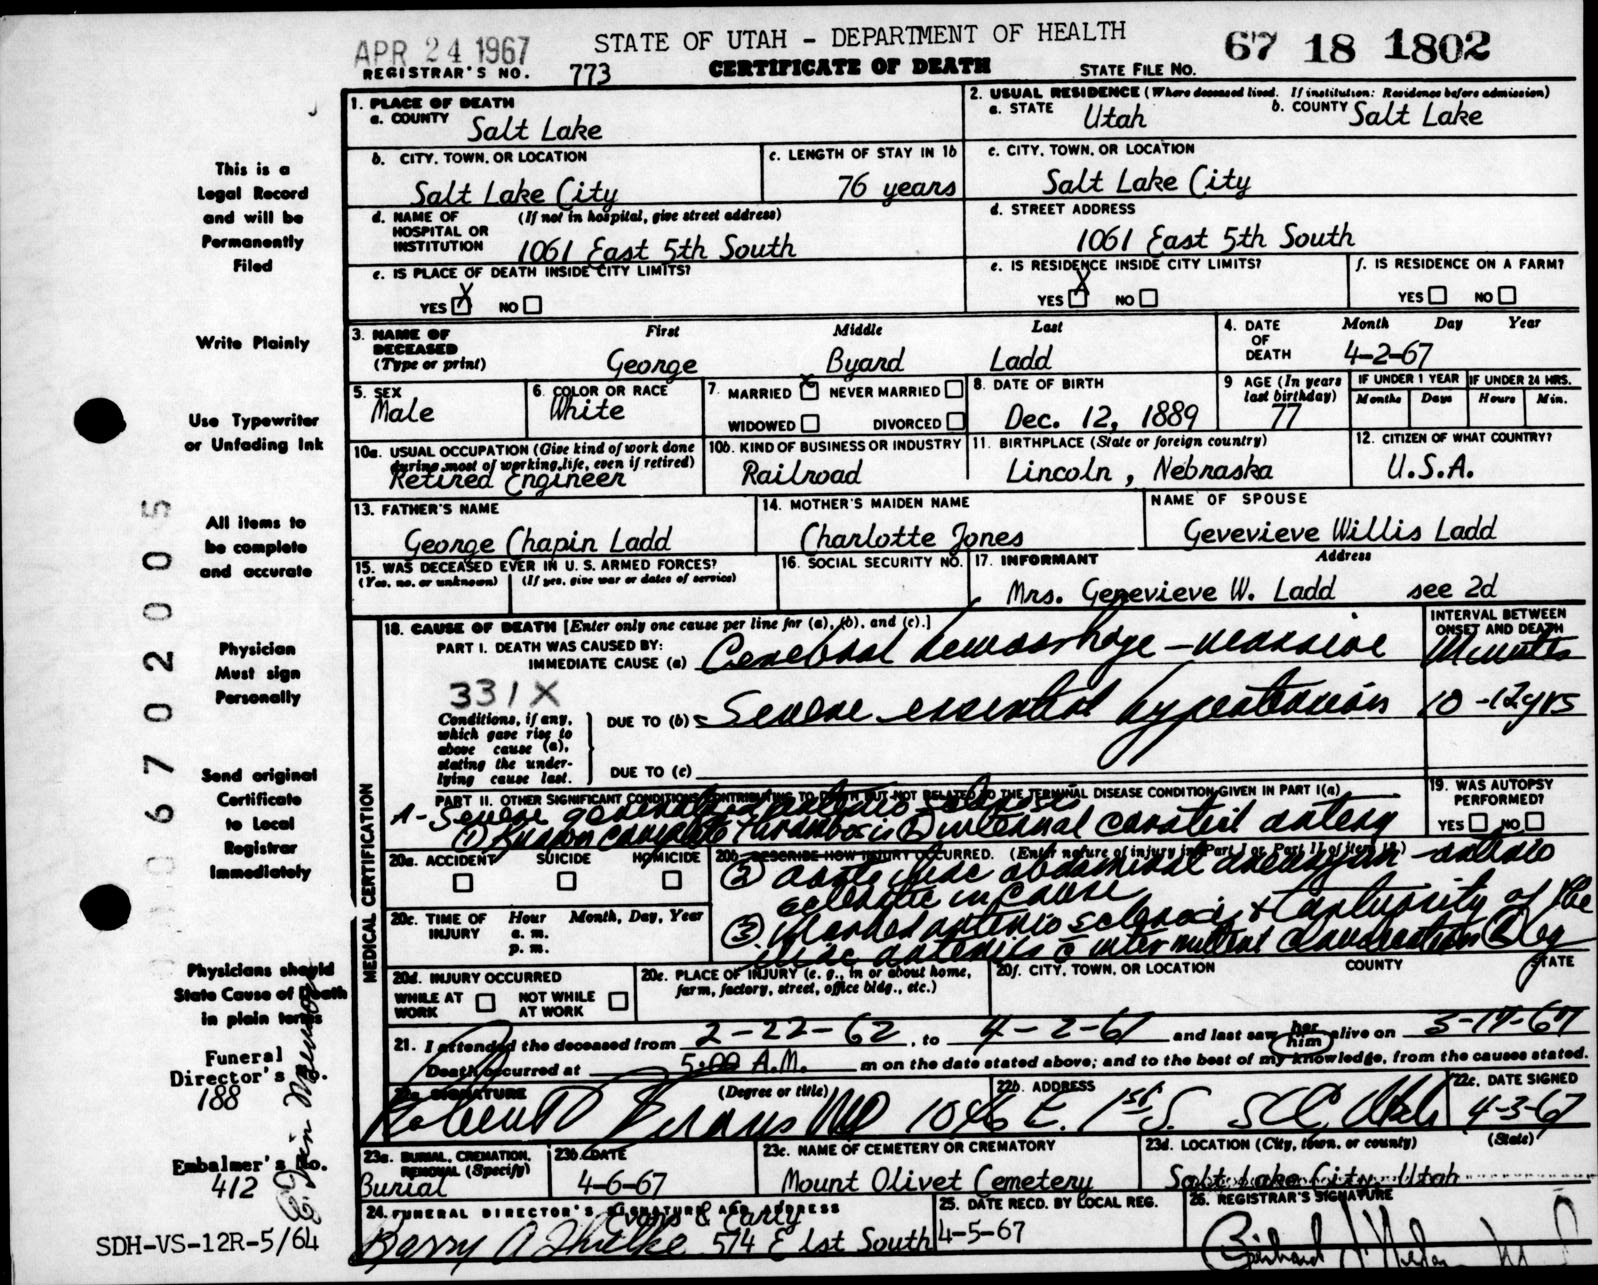 APR 24 1967
STATE OF UTAH - DEPARTMENT OF HEALTH
67 18 1802
REGISTRAR'S NO. 773
CERTIFICATE OF DEATH
STATE FILE NO.
1. PLACE OF DEATH
a. COUNTY Salt Lake
2. USUAL RESIDENCE (Where deceased lived. If institution: Residence before admission)
a. STATE Utah b. COUNTY Salt Lake
b. CITY, TOWN, OR LOCATION
Salt Lake City
c. LENGTH OF STAY IN 1b
76 years
c. CITY, TOWN, OR LOCATION
Salt Lake City
d. NAME OF HOSPITAL OR INSTITUTION (If not in hospital, give street address)
1061 East 5th South
d. STREET ADDRESS
1061 East 5th South
e. IS PLACE OF DEATH INSIDE CITY LIMITS?
YES X NO
e. IS RESIDENCE INSIDE CITY LIMITS?
YES X NO
f. IS RESIDENCE ON A FARM?
YES NO
3. NAME OF DECEASED (Type or print)
First Middle Last
George Byard Ladd
4. DATE OF DEATH
Month Day Year
4-2-67
5. SEX
Male
6. COLOR OR RACE
White
7. MARRIED X NEVER MARRIED
WIDOWED DIVORCED
8. DATE OF BIRTH
Dec. 12, 1889
9 AGE (In years last birthday)
77
IF UNDER 1 YEAR
Months Days
IF UNDER 24 HRS.
Hours Min.
10a. USUAL OCCUPATION (Give kind of work done during most of working life, even if retired)
Retired Engineer
10b. KIND OF BUSINESS OR INDUSTRY
Railroad
11. BIRTHPLACE (State or foreign country)
Lincoln, Nebraska
12. CITIZEN OF WHAT COUNTRY?
U.S.A.
13. FATHER'S NAME
George Chapin Ladd
14. MOTHER'S MAIDEN NAME
Charlotte Jones
NAME OF SPOUSE
Gevevieve Willis Ladd
15. WAS DECEASED EVER IN U. S. ARMED FORCES?
(Yes, no, or unknown) (If yes, give war or dates of service)
16. SOCIAL SECURITY NO.
17. INFORMANT Address
Mrs. Genevieve W. Ladd see 2d
MEDICAL CERTIFICATION
18. CAUSE OF DEATH [Enter only one cause per line for (a), (b), and (c).]
INTERVAL BETWEEN ONSET AND DEATH
PART I. DEATH WAS CAUSED BY:
IMMEDIATE CAUSE (a) Cerebral hemorrhage - massive Minutes
331X
Conditions, if any, which gave rise to above cause (a), stating the underlying cause last.
DUE TO (b) Severe essential hypertension 10-12 yrs
DUE TO (c)
PART II. OTHER SIGNIFICANT CONDITIONS CONTRIBUTING TO DEATH BUT NOT RELATED TO THE TERMINAL DISEASE CONDITION GIVEN IN PART I(a)
A- Severe generalized arterio sclerosis
(1) Known complete thrombosis internal carotid artery
19. WAS AUTOPSY PERFORMED?
YES NO
20a. ACCIDENT SUICIDE HOMICIDE
20b. DESCRIBE HOW INJURY OCCURRED. (Enter nature of injury in Part I or Part II of item 18.)
(2) aorto iliac abdominal aneurysm - arterio
sclerotic in cause
(3) Marked arterio sclerosis & tortuosity of the
iliac arteries c intermittent claudication leg
20c. TIME OF INJURY Hour a. m. p. m. Month, Day, Year
20d. INJURY OCCURRED
WHILE AT WORK NOT WHILE AT WORK
20e. PLACE OF INJURY (e. g., in or about home, farm, factory, street, office bldg., etc.)
20f. CITY, TOWN, OR LOCATION COUNTY STATE
21. I attended the deceased from 2-22-62, to 4-2-67 and last saw her him alive on 3-17-67
Death occurred at 5:00 A.M. m on the date stated above; and to the best of my knowledge, from the causes stated.
22a. SIGNATURE (Degree or title)
Robert Evans MD
22b. ADDRESS
1046 E. 1st S. SLC Utah
22c. DATE SIGNED
4-3-67
23a. BURIAL, CREMATION, REMOVAL (Specify)
Burial
23b. DATE
4-6-67
23c. NAME OF CEMETERY OR CREMATORY
Mount Olivet Cemetery
23d. LOCATION (City, town, or county) (State)
Salt Lake City, Utah
24. FUNERAL DIRECTOR'S SIGNATURE AND ADDRESS
Evans & Early
Barry A 574 E 1st South
25. DATE RECD. BY LOCAL REG.
4-5-67
26. REGISTRAR'S SIGNATURE
This is a
Legal Record
and will be
Permanently
Filed
Write Plainly
Use Typewriter
or Unfading Ink
All items to
be complete
and accurate
Physician
Must sign
Personally
Send original
Certificate
to Local
Registrar
Immediately
Physicians should
State Cause of Death
in plain terms
Funeral
Director's No.
188
Embalmer's No.
412
SDH-VS-12R-5/64